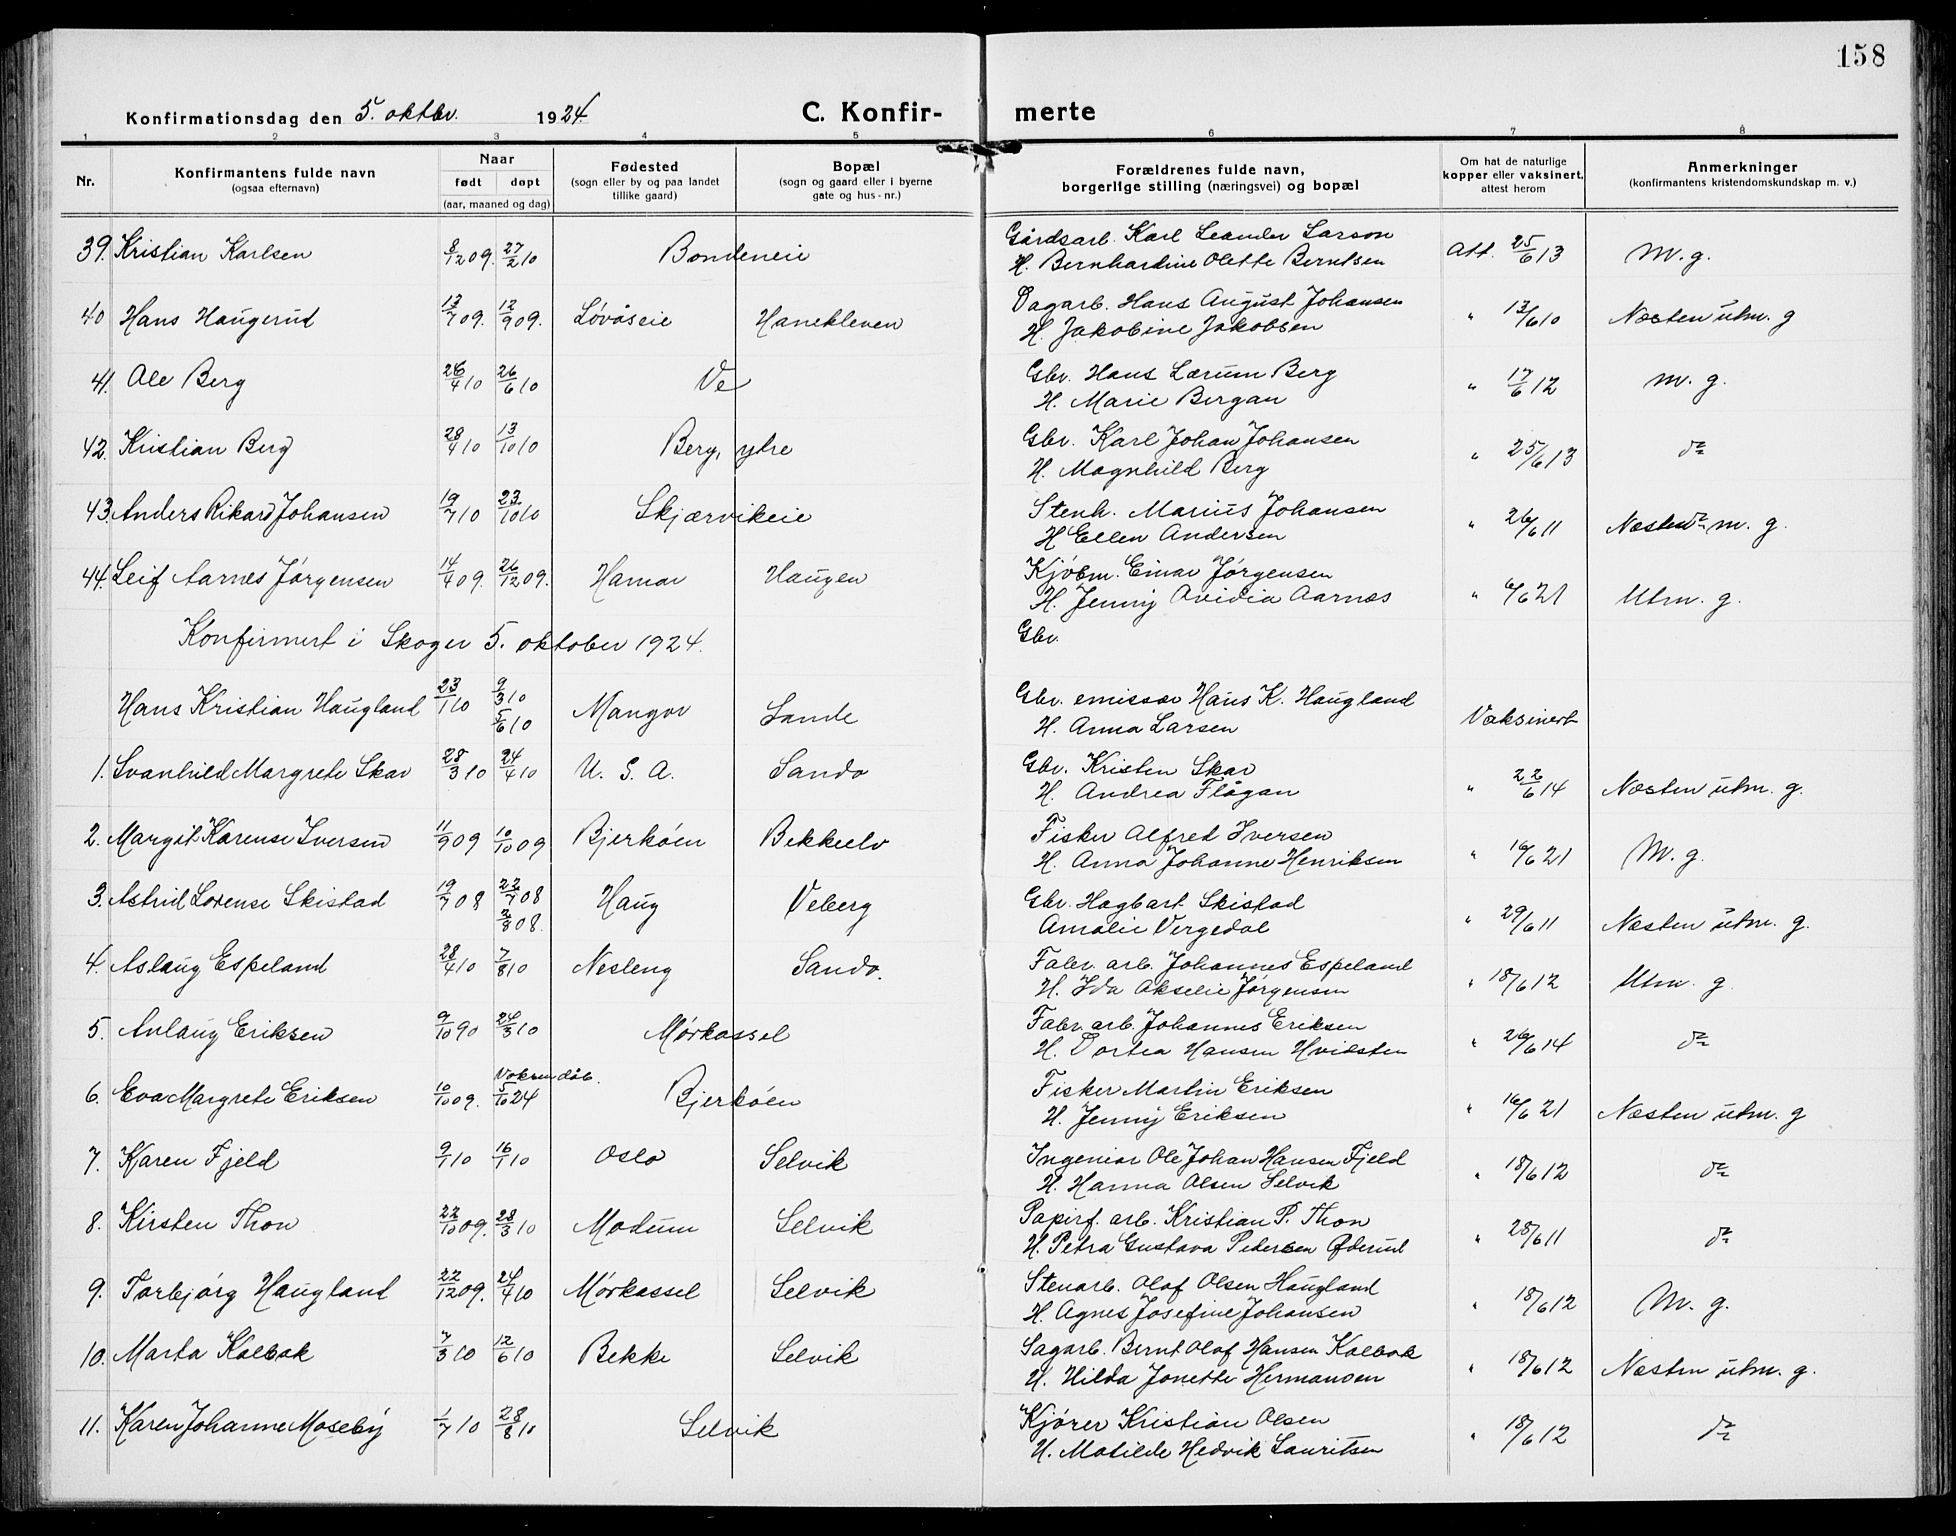 158
Konfirmationsdag den 5. oktbr. 1924.
C. Konfirmerte
1 2 3 4 5 6 7 8
Nr.
Konfirmantens fulde navn (ogsaa efternavn)
Naar født døpt (aar, maaned og dag)
Fødested (sogn eller by og paa landet tillike gaard)
Bopæl (sogn og gaard eller i byerne gate og hus-nr.)
Forældrenes fulde navn, borgerlige stilling (næringsvei) og bopæl
Om hat de naturlige kopper eller vaksinert, attest herom
Anmerkninger (konfirmantens kristendomskundskap m. v.)
39. Kristian Karlsen 8/12 09. 27/2 10 Bondeneie Gårdsarb. Karl Leander Larson Att. 25/6 13 M. g.
H. Bernhardine Olette Berntsen
40 Hans Haugerud 13/7 09. 12/9 09. Løvåseie Hanekleven Dagarb. Hans August Johansen " 13/6 10 Næsten utm. g
H. Jakobine Jakobsen
41. Ole Berg 26/4 10 26/6 10 Ve Gbr. Hans Lærum Berg " 17/6 12 M. g.
H. Marie Bergan
42. Kristian Berg 28/4 10 13/10 10 Berg, ytre Gbr. Karl Johan Johansen " 25/6 13 do
H. Magnhild Berg
43. Anders Rikard Johansen 19/7 10 23/10 10 Skjærvikeie Stenh. Marius Johansen " 26/6 11 Næsten m. g.
H Ellen Andersen
44. Leif Aarnes Jørgensen 14/4 09. 26/12 09. Hamar Haugen Kjøbm. Einar Jørgensen " 6/6 21 Utm. g.
H. Jenny Ovidia Aarnæs
Konfirmert i Skoger 5. oktober 1924. Gbr.
Hans Kristian Haugland 23/1 10 9/3 10 5/6 10 Mangor Sande Gbr. emissær Hans K. Haugland Vaksinert
H. Anna Larsen
1. Svanhild Margrete Skar 28/3 10 24/4 10 U. S. A. Sando Gbr. Kristen Skar " 22/6 14 Næsten utm. g.
H. Andrea Flågan
2. Margit Karense Iversen 11/9 09 10/10 09 Bjerkøen Bekkeelv Fisker Alfred Iversen " 16/6 21 M. g.
H. Anna Johanne Henriksen
3. Astrid Lovense Skistad 19/7 08 22/7 08 2/8 08. Haug Veberg Gbr. Hagbart Skistad " 29/6 11 Næsten utm. g.
Amalie Vergedal
4. Aslaug Espeland 28/4 10 7/8 10 Nesleng Sando. Fabr. arb. Johannes Espeland " 18/6 12 Utm. g.
H. Ida Akselie Jørgensen
5. Anlaug Eriksen 9/10 90 24/3 10 Mørkassel Fabr. arb. Johannes Eriksen " 26/6 14 do
H. Dortea Hansen Hvidsten
6. Eva Margrete Eriksen 10/10 09. Voksendåb. 5/10 24 Bjerkøen Fisker Martin Eriksen " 16/6 21 Næsten utm. g
H. Jenny Eriksen
7. Karen Fjeld 9/1 10 16/1 10 Oslo Selvik Ingeniør Ole Johan Hansen Fjeld " 18/6 12 do
H. Hanna Olsen Selvik
8. Kirsten Thon 22/10 09. 28/3 10 Modum Selvik Papirf. arb. Kristian P. Thon " 28/6 11 do
H. Petra Gustava Pedersen Øderud
9. Torbjørg Haugland 22/12 09. 24/4 10 Mørkassel Selvik Stenarb. Olaf Olsen Haugland " 18/6 12 M. g.
H. Agnes Josefine Johansen
10. Marta Kolbak 7/3 10 12/6 10 Bekke Selvik Sagarb. Bernt Olaf Hansen Kolbak " 18/6 12 Næsten utm. g.
H. Hilda Jonette Hermansen
11. Karen Johanne Moseby 1/7 10 28/8 10 Selvik Kjører Kristian Olsen " 18/6 12 do
H. Matilde Hedvik Lauritsen